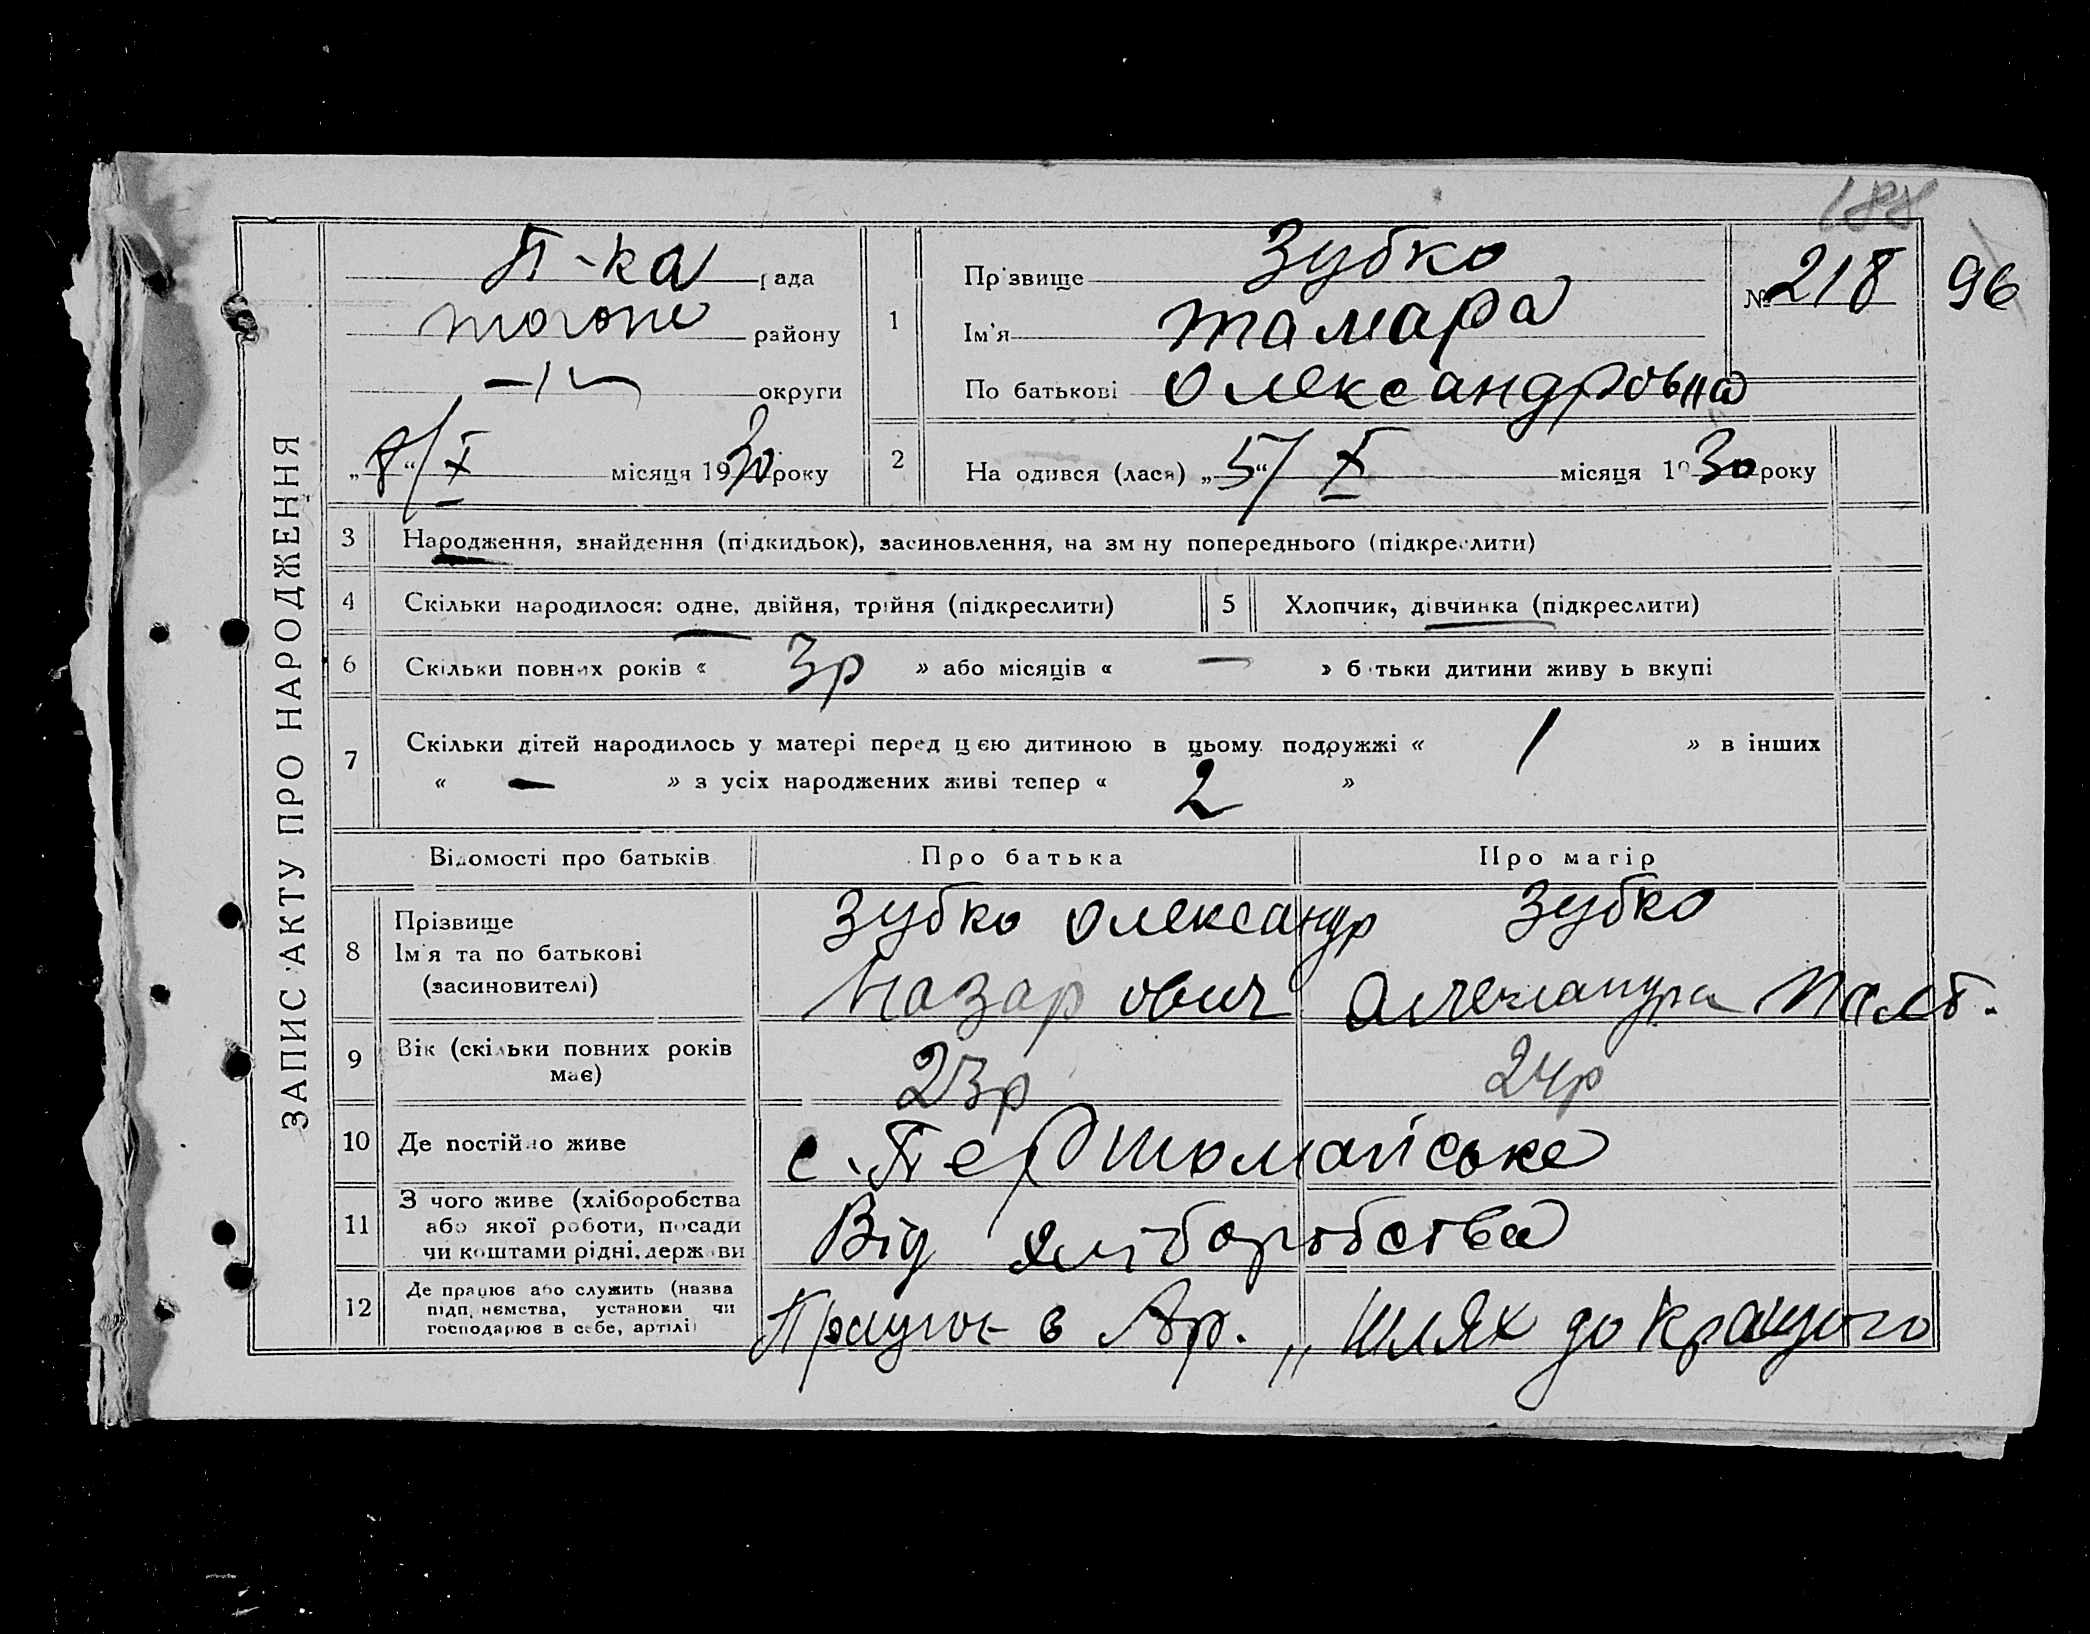 188
ЗАПИС АКТУ ПРО НАРОДЖЕННЯ
П-ка рада
району
округи
„8“/X місяця 1930 року
1
Прізвище Зубко
Ім'я Тамара
По батькові Олександровна
№ 218
96
2 На одився (лася) „5“/X місяця 1930 року
3 Народження, знайдення (підкидьок), засиновлення, на зм ну попереднього (підкреслити)
4 Скільки народилося: одне, двійня, трійня (підкреслити)
5 Хлопчик, дівчинка (підкреслити)
6 Скільки повних років « 3р » або місяців « — » б тьки дитини живу ь вкупі
7 Скільки дітей народилось у матері перед цією дитиною в цьому подружжі « 1 » в інших
« — » з усіх народжених живі тепер « 2 »
Відомості про батьків Про батька Про матір
8 Прізвище
Ім'я та по батькові
(засиновителі)
Зубко Олександр
Назарович
Зубко
Олександра
9 Вік (скільки повних років
має)
23р 24р
10 Де постійно живе с. Першомайське
11 З чого живе (хліборобства
або якої роботи, посади
чи коштами рідні, держави
Від хліборобства
12 Де працює або служить (назва
підп, немства, установи чи
господарює в себе, артілі)
Працює в Ар. „Шлях до кращого